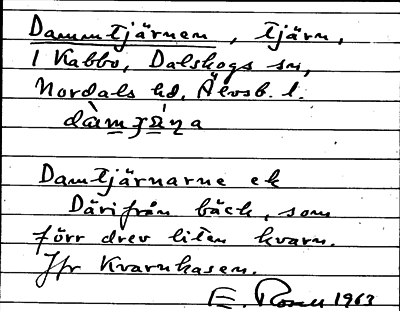 Dammtjärnen, tjärn,
i Kabbo, Dalskogs sn,
Nordals hd. Älvsb. l.
Damtjärnarne ek
Därifrån bäck, som
förr drev liten kvarn.
Jfr Kvarnkasen.
E. Rosell 1963